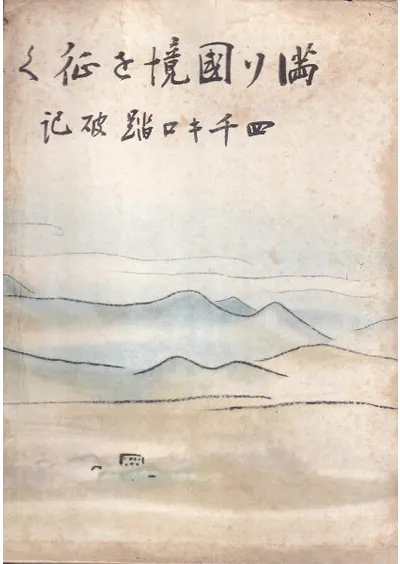 満ソ國境を征く
四千キロ踏破記